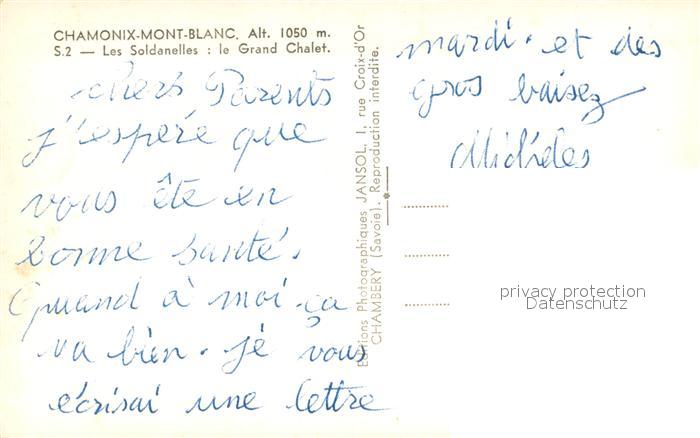 CHAMONIX-MONT-BLANC. Alt. 1050 m.
S.2 — Les Soldanelles : le Grand Chalet.
chers Parents
j'espère que
vous ête en
bonne santé.
Quand à moi ça
va bien. je vous
écrisai une lettre
mardi. et des
gros baisez
Editions Photographiques JANSOL, 1, rue Croix-d'Or
CHAMBERY (Savoie). Reproduction interdite.
privacy protection
Datenschutz